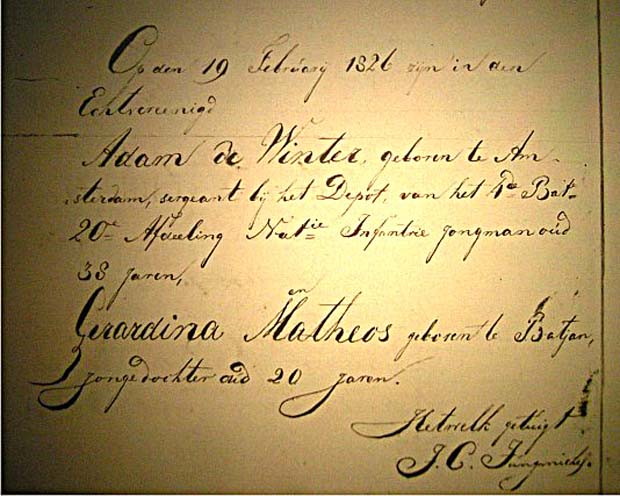 Op den 19 Februarij 1826 zijn in den
Echt vereenigd
Adam de Winter, geboren te Am-
sterdam, sergeant bij het Depot, van het 4de Bat.
20e Afdeeling Natie Infantrie jongman oud
38 jaren,
en
Gerardina Matheos geboren te Batjan,
jongedochter oud 20 jaren.
Hetwelk getuigt
J. C.